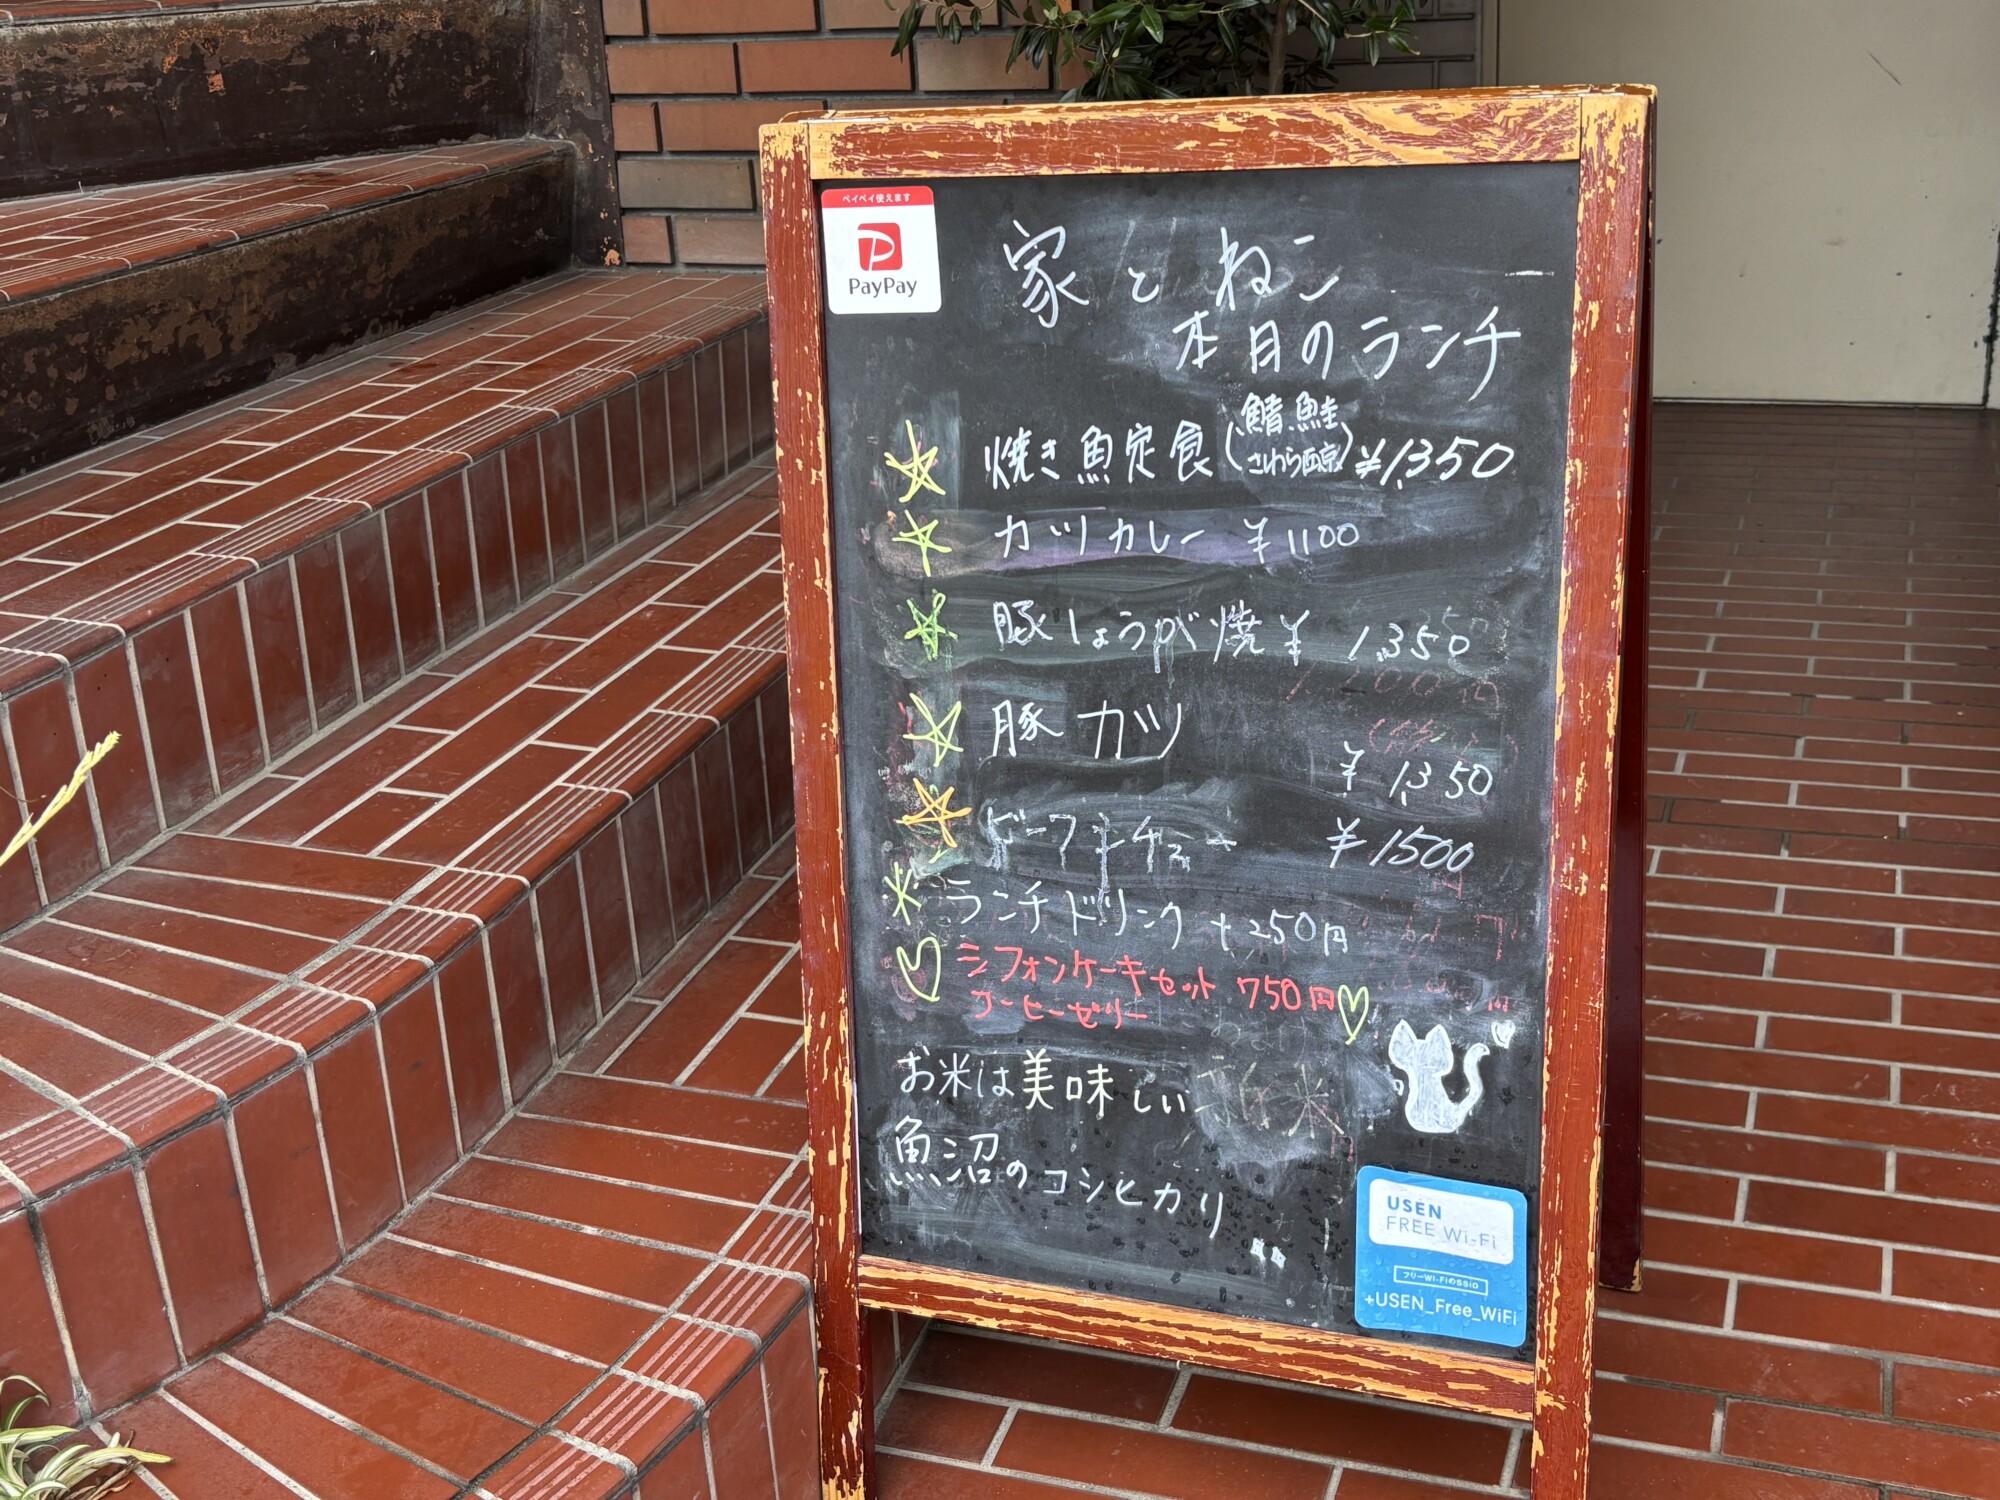 ペイペイ使えます
PayPay
家とねこ
本日のランチ
焼き魚定食(鯖、鮭 さわら西京) ¥1,350
カツカレー ¥1100
豚しょうが焼 ¥1,350
豚カツ ¥1,350
ビーフシチュー ¥1500
ランチドリンク +250円
シフォンケーキセット 750円
コーヒーゼリー
お米は美味しい
魚沼のコシヒカリ
USEN
FREE Wi-Fi
フリーWi-FiのSSID
+USEN_Free_WiFi